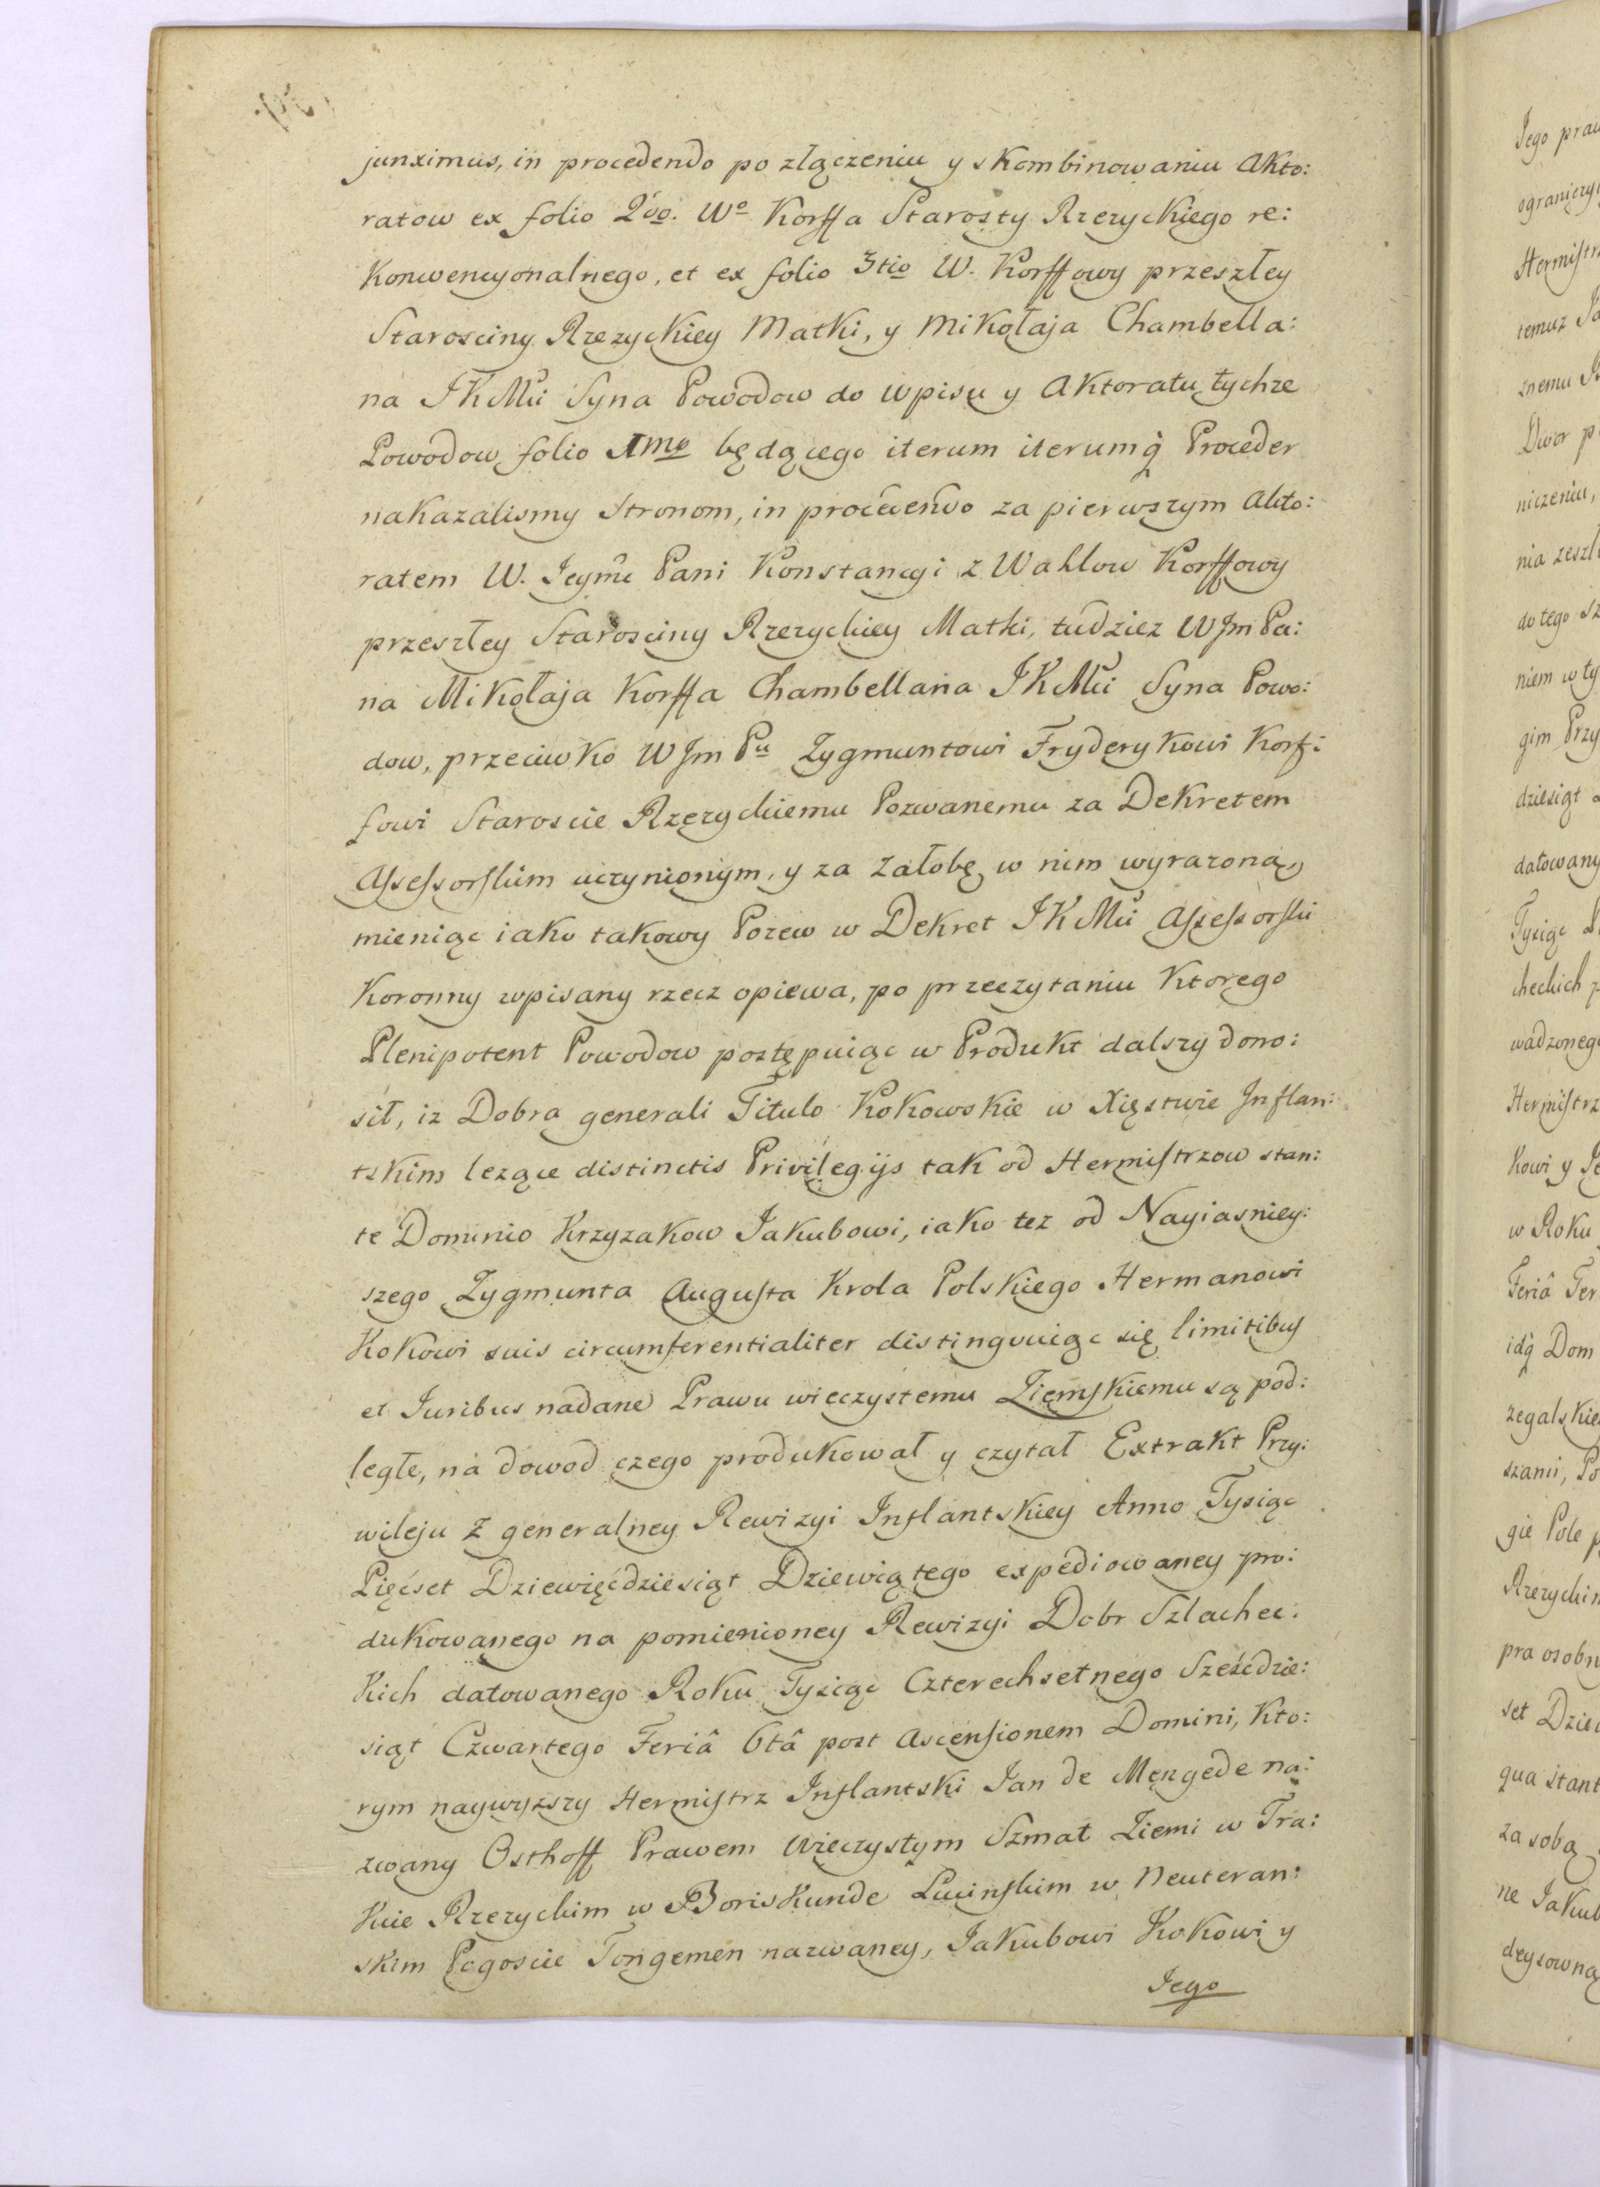 junximus, in procedendo po złączeniu y skombinowaniu Akto:
ratow ex folio 2do. Wo Korffa Starosty Rzezyckiego re:
konwencyonalnego, et ex folio 3tio W. Korffowy przeszłey
Starosciny Rzezyckiey Matki, y Mikołaja Chambella:
na JKMci Syna Powodow do wpisu y Aktoratu tychze
Powodow folio 1mo będącego iterum iterumq̃ Proceder
nakazalismy Stronom, in procedendo za pierwszym Akto:
ratem W. Jeymc Pani Konstancyi z Wahlow Korffowy
przeszłey Starosciny Rzezyckiey Matki, tudziez WJm Pa:
na Mikołaja Korffa Chambellana JKMci Syna Powo:
dow, przeciwko WJm Pu Zygmuntowi Fryderykowi Korf:
fowi Staroscie Rzezyckiemu Pozwanemu za Dekretem
Assessorskim uczynionym, y za Załobę w nim wyrazoną,
mieniąc iako takowy Pozew w Dekret JKMci Assessorski
Koronny wpisany rzecz opiewa, po przeczytaniu ktorego
Plenipotent Powodow postępuiąc w Produkt dalszy dono:
sił, iz Dobra generali Titulo Kokowskie w Xięstwie Inflan:
tskim lezące distinctis Privilegijs tak od Hermistrzow stan:
te Dominio Krzyzakow Jakubowi, iako tez od Nayiasniey:
szego Zygmunta Augusta Krola Polskiego Hermanowi
Kokowi suis circumferentialiter distingvuiąc się limitibus
et Juribus nadane Prawu wieczystemu Ziemskiemu są pod:
ległe, na dowod czego produkował y czytał Extrakt Przy:
wileju z generalney Rewizyi Inflantskiey Anno Tysiąc
Pięćset Dziewięćdziesiąt Dziewiątego expediowaney pro:
dukowanego na pomienioney Rewizyi Dobr Szlachec:
kich datowanego Roku Tysiąc Czterechsetnego Sześćdzie:
siąt Czwartego Feriâ 6tâ post Ascensionem Domini, kto:
rym naywyzszy Hermistrz Inflantski Jan de Mengede na:
zwany Osthoff Prawem wieczystym Szmat Ziemi w Tra:
kcie Rzezyckim w Boriskunde Lucinskim w Neuteran:
skim Pogoscie Tongemen nazwaney, Jakubowi Kokowi y
Jego